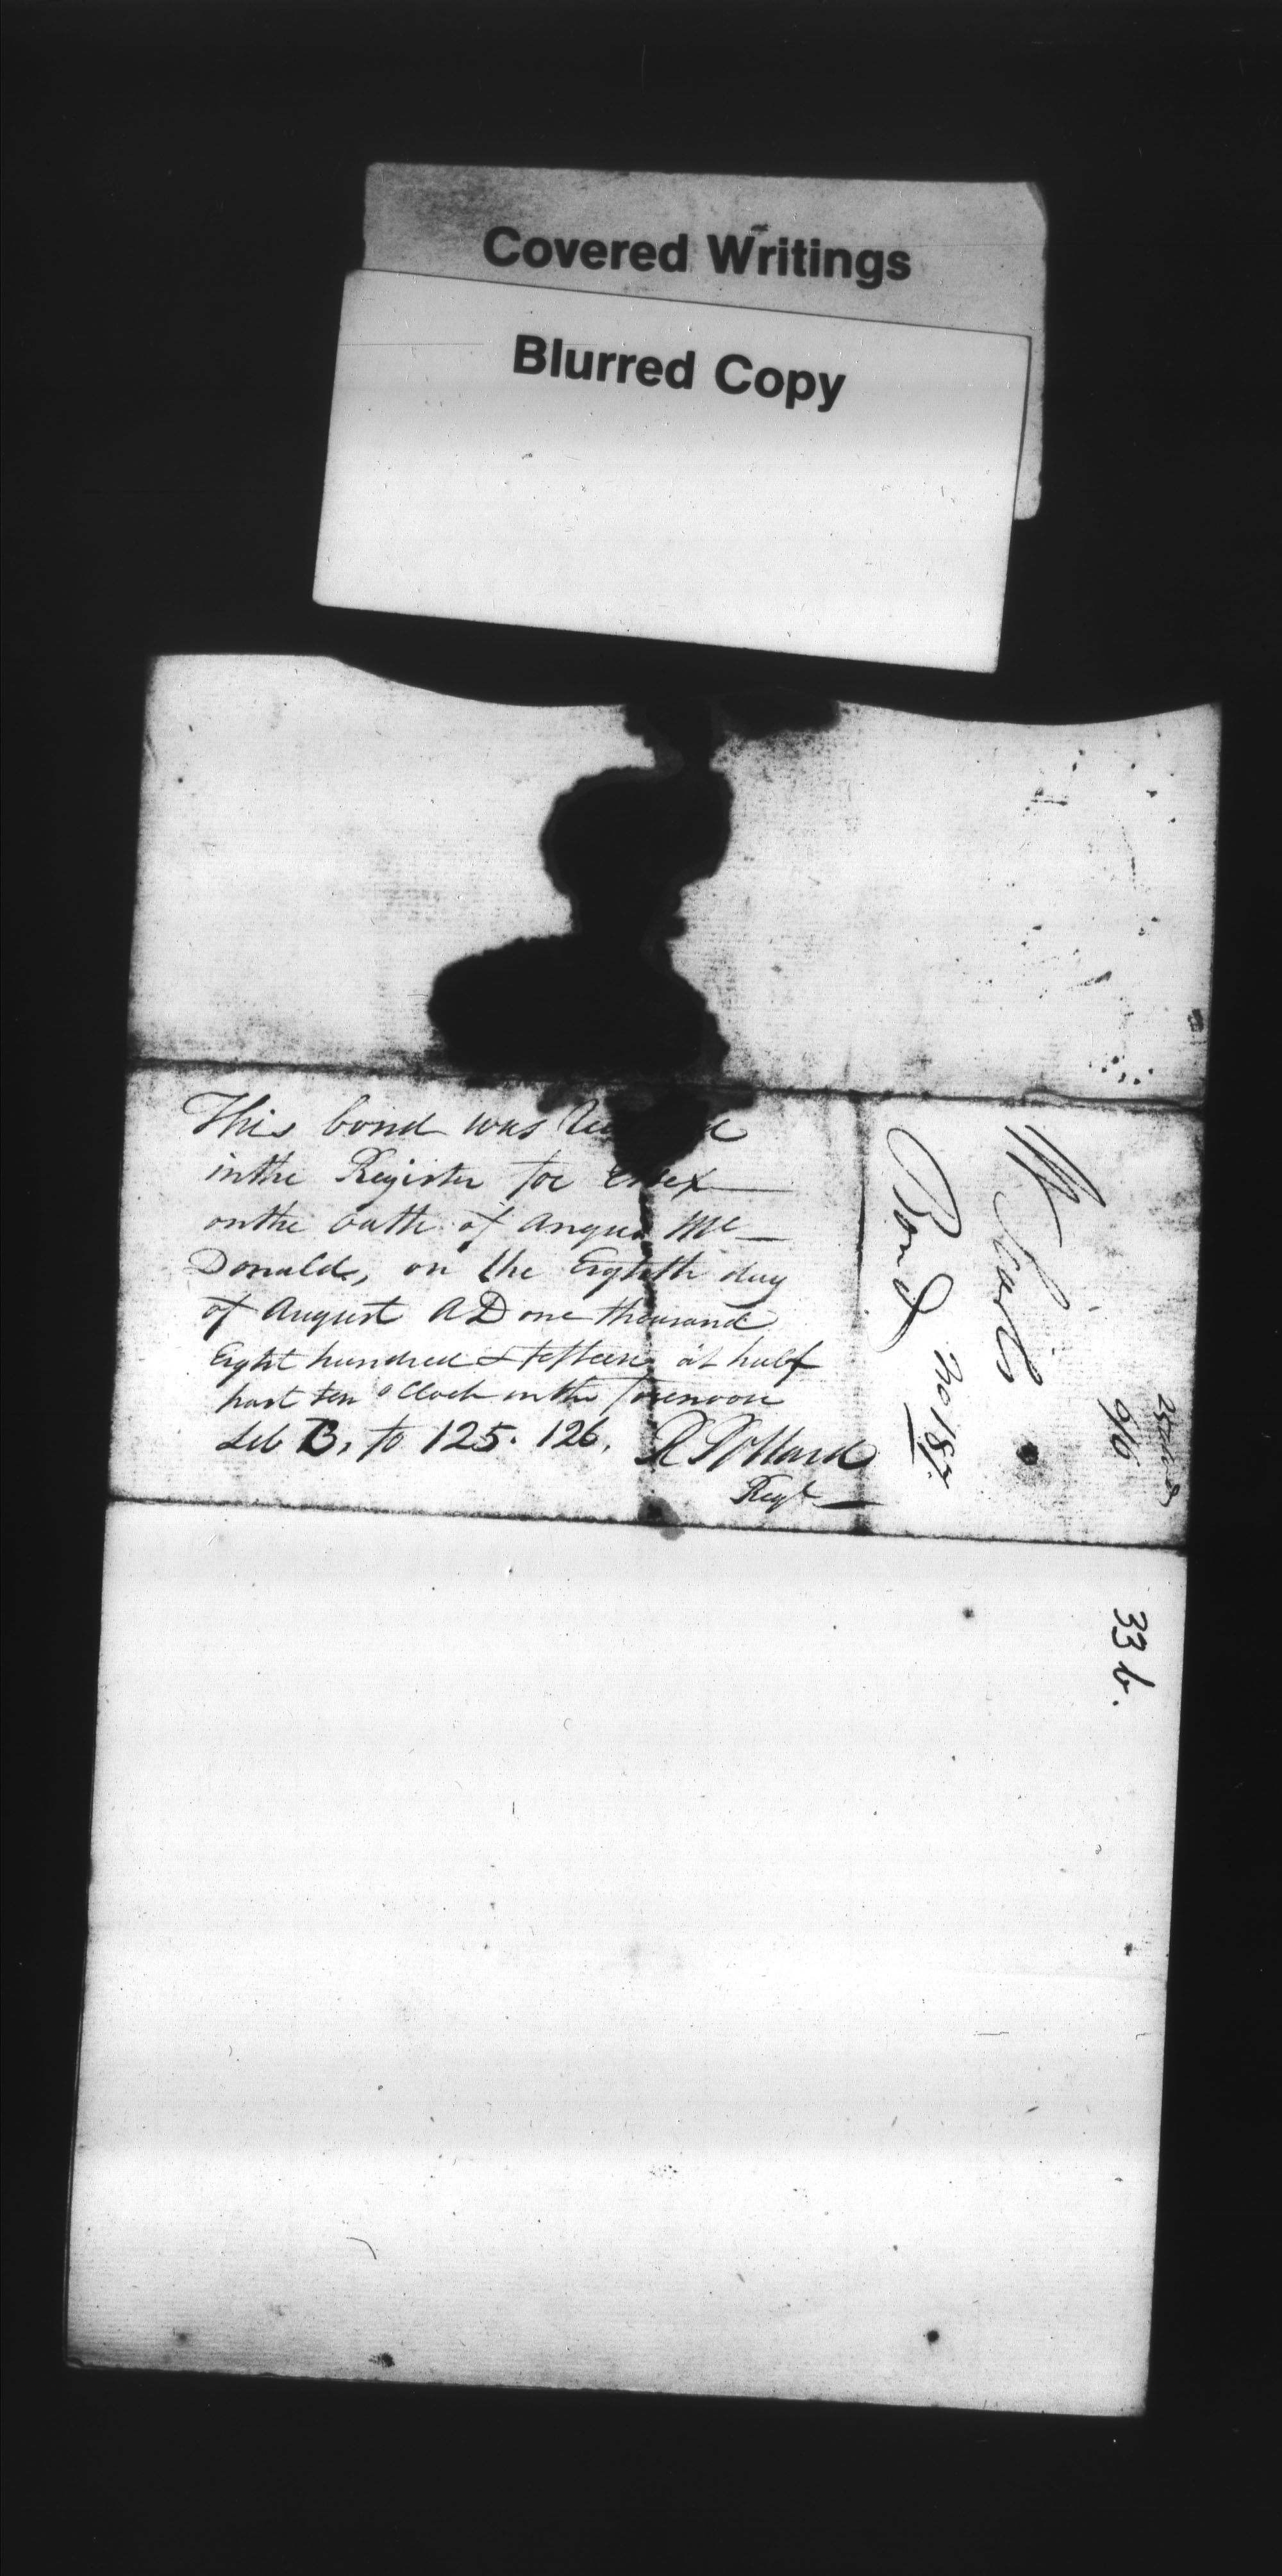 Covered Writings
Blurred Copy
This bond was
in the Register for Essex
on the oathe of Angus Mc
Donald, on the Eighth day
of August AD one thousand
Eight hundred & fifteen at half
past ten o Clock in the forenoon
Lib B, fo 125. 126.
R Pollard
Regr
Bond
No 187
9/6
33 b.